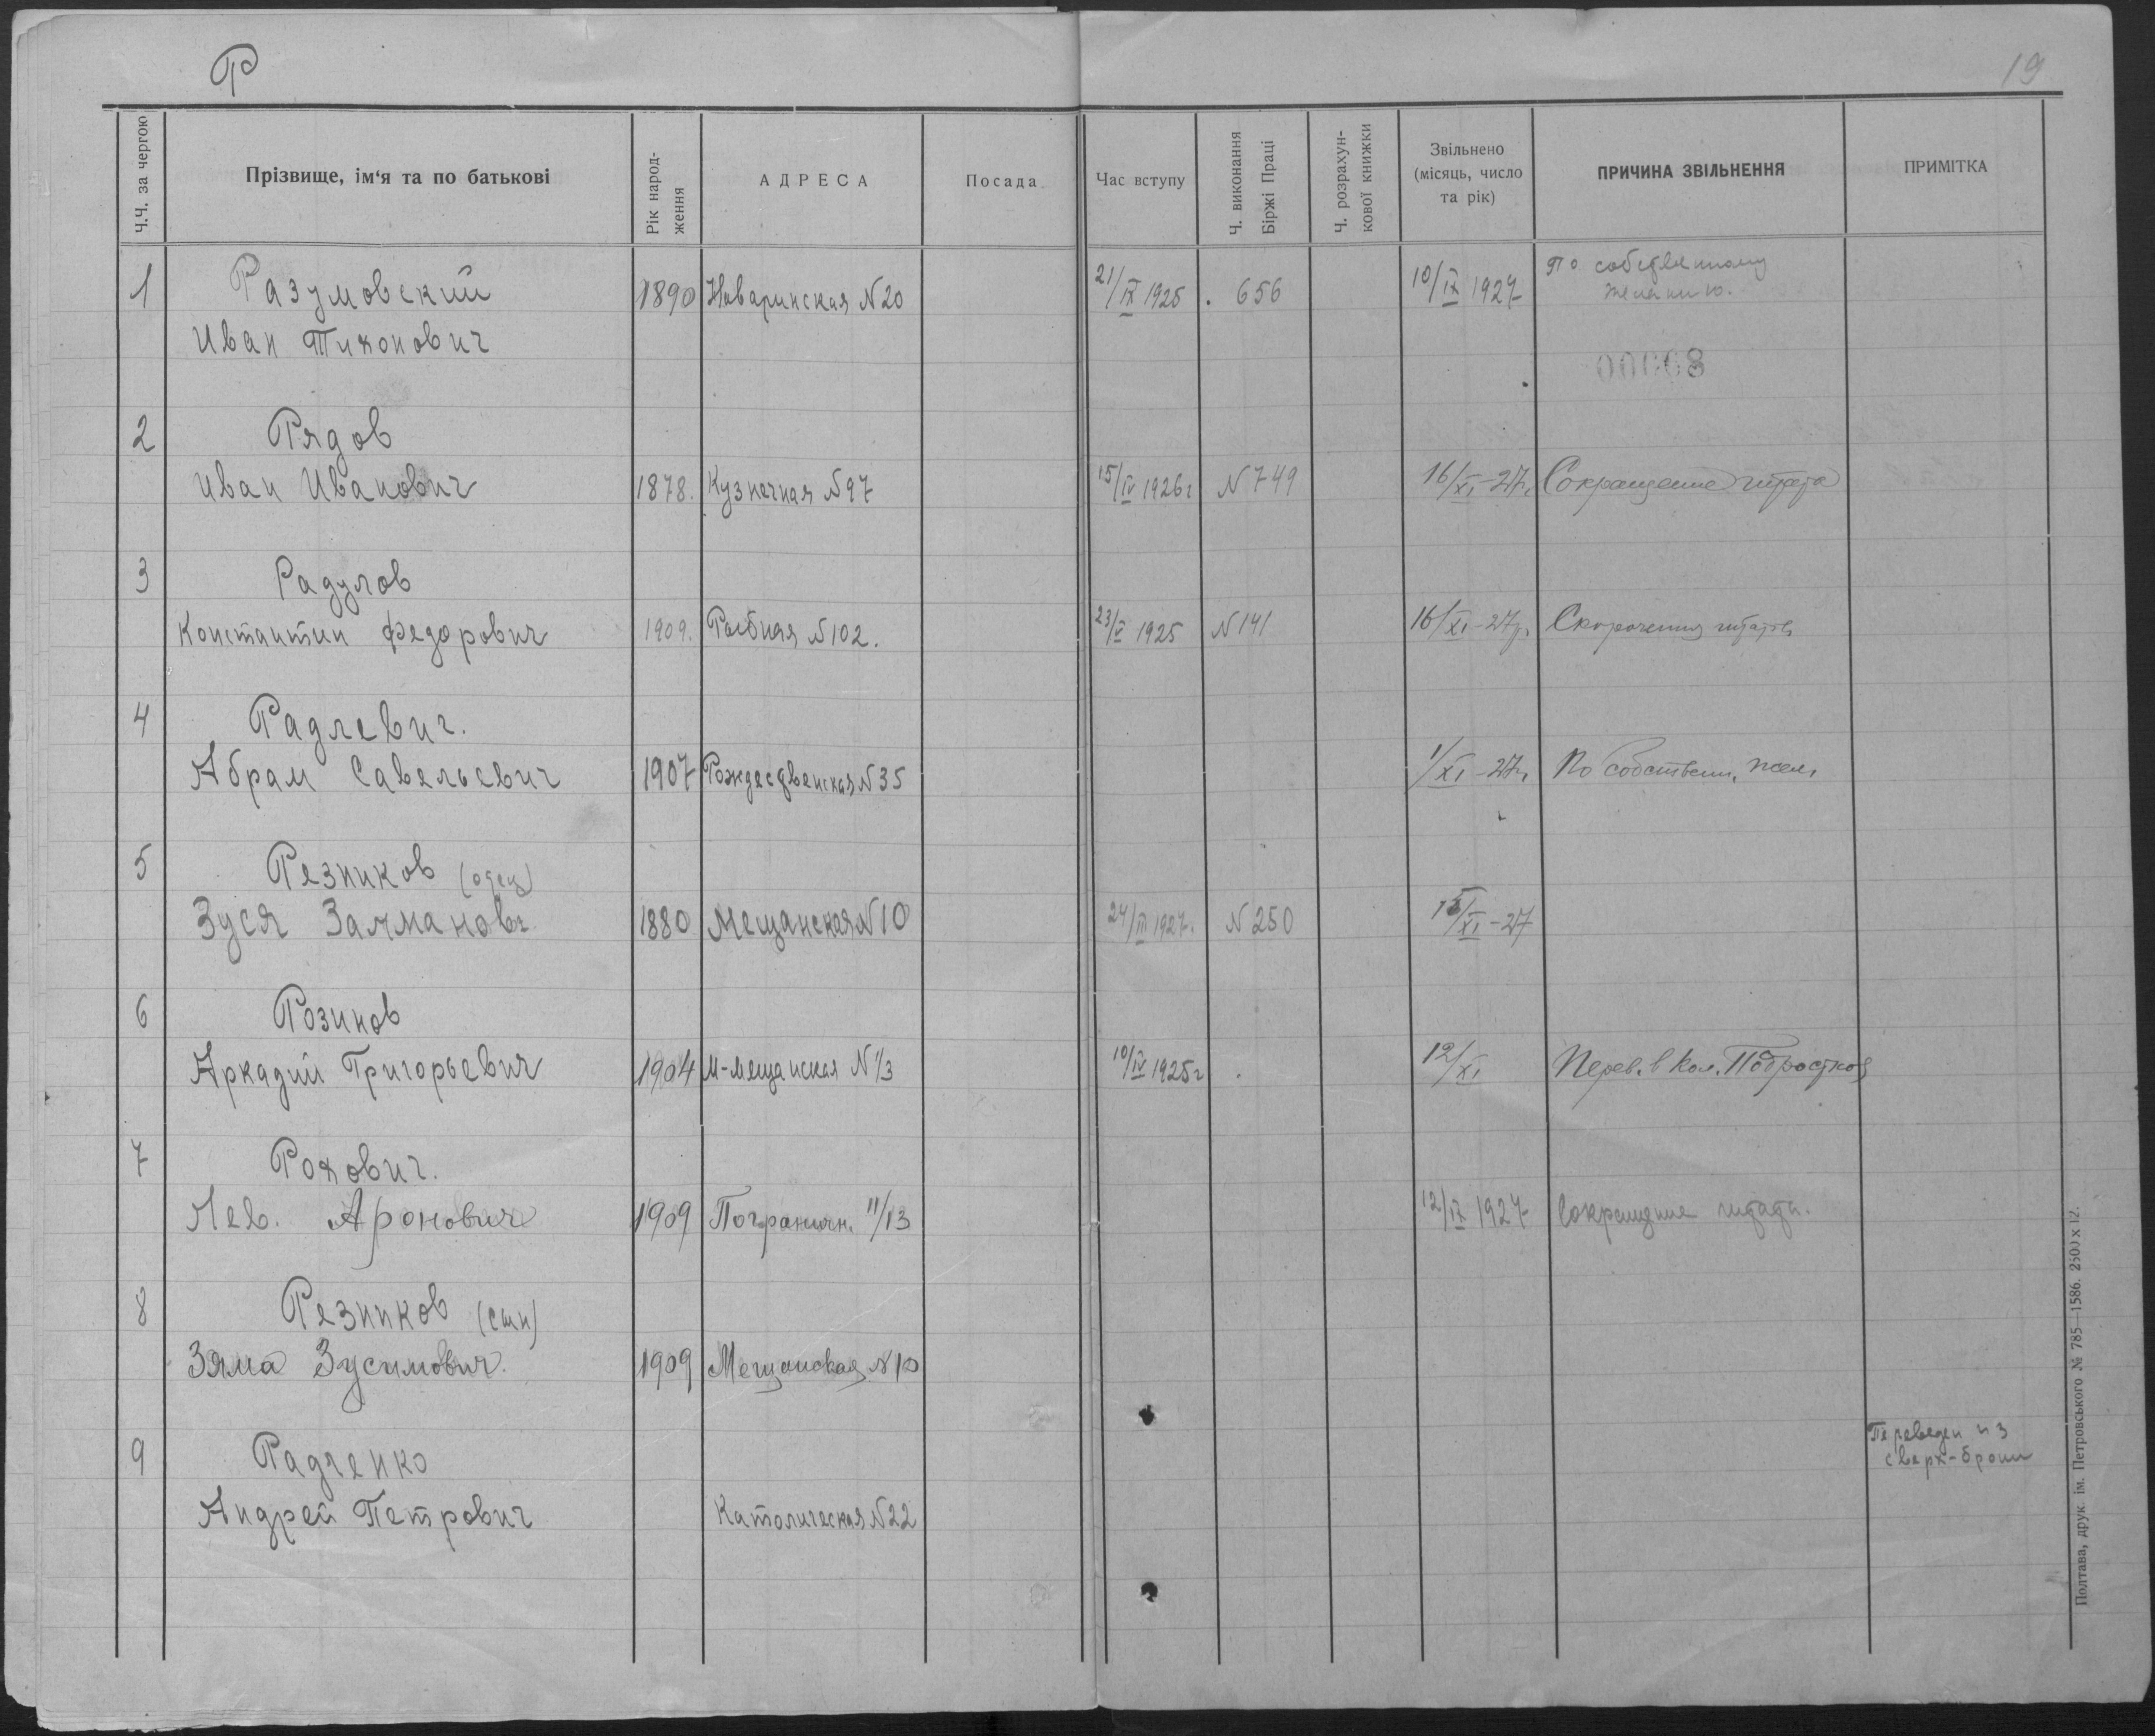 Р
19
Ч.Ч. за чергою
Прізвище, ім'я та по батькові
Рік народ-
ження
АДРЕСА
Посада
Час вступу
Ч. виконання
Біржі Праці
Ч. розрахун-
кової книжки
Звільнено
(місяць, число
та рік)
ПРИЧИНА ЗВІЛЬНЕННЯ
ПРИМІТКА
1 Разумовский 1890 Наваринская N20 21/IX 1925 . 656 10/IX 1927 По собственному
желанию.
Иван Тихонович
00008
2 Рядов
Иван Иванович 1878. Кузнечная N97 15/IV 1926г N749 16/XI-27г. Сокращение штата
3 Радулов
Константин Федорович 1909. Рыбная N102. 23/V 1925 N141 16/XI-27г. Скорочення штатів
4 Радлевич.
Абрам Савельевич 1907 Рождественская N35 1/XI-27г. По собствен. жел.
5 Резников (отец)
Зуся Залманов. 1880 Мещанская N10 24/III 1927. N250 15/XI-27
6 Розинов
Аркадий Григорьевич 1904 М-мещанская N1/3 10/IV 1925г . 12/XI Перев. в Кол. Подростков
7 Рохович.
Лев. Аронович 1909 Пограничн. 11/13 12/IX 1927 Сокращение штата.
8 Резников (сын)
Зяма Зусимович. 1909 Мещанская N10
9 Радченко Переведен из
сверх-брони
Андрей Петрович Католическая N22
Полтава, друк. ім. Петровського № 785—1586. 2500 x 12.